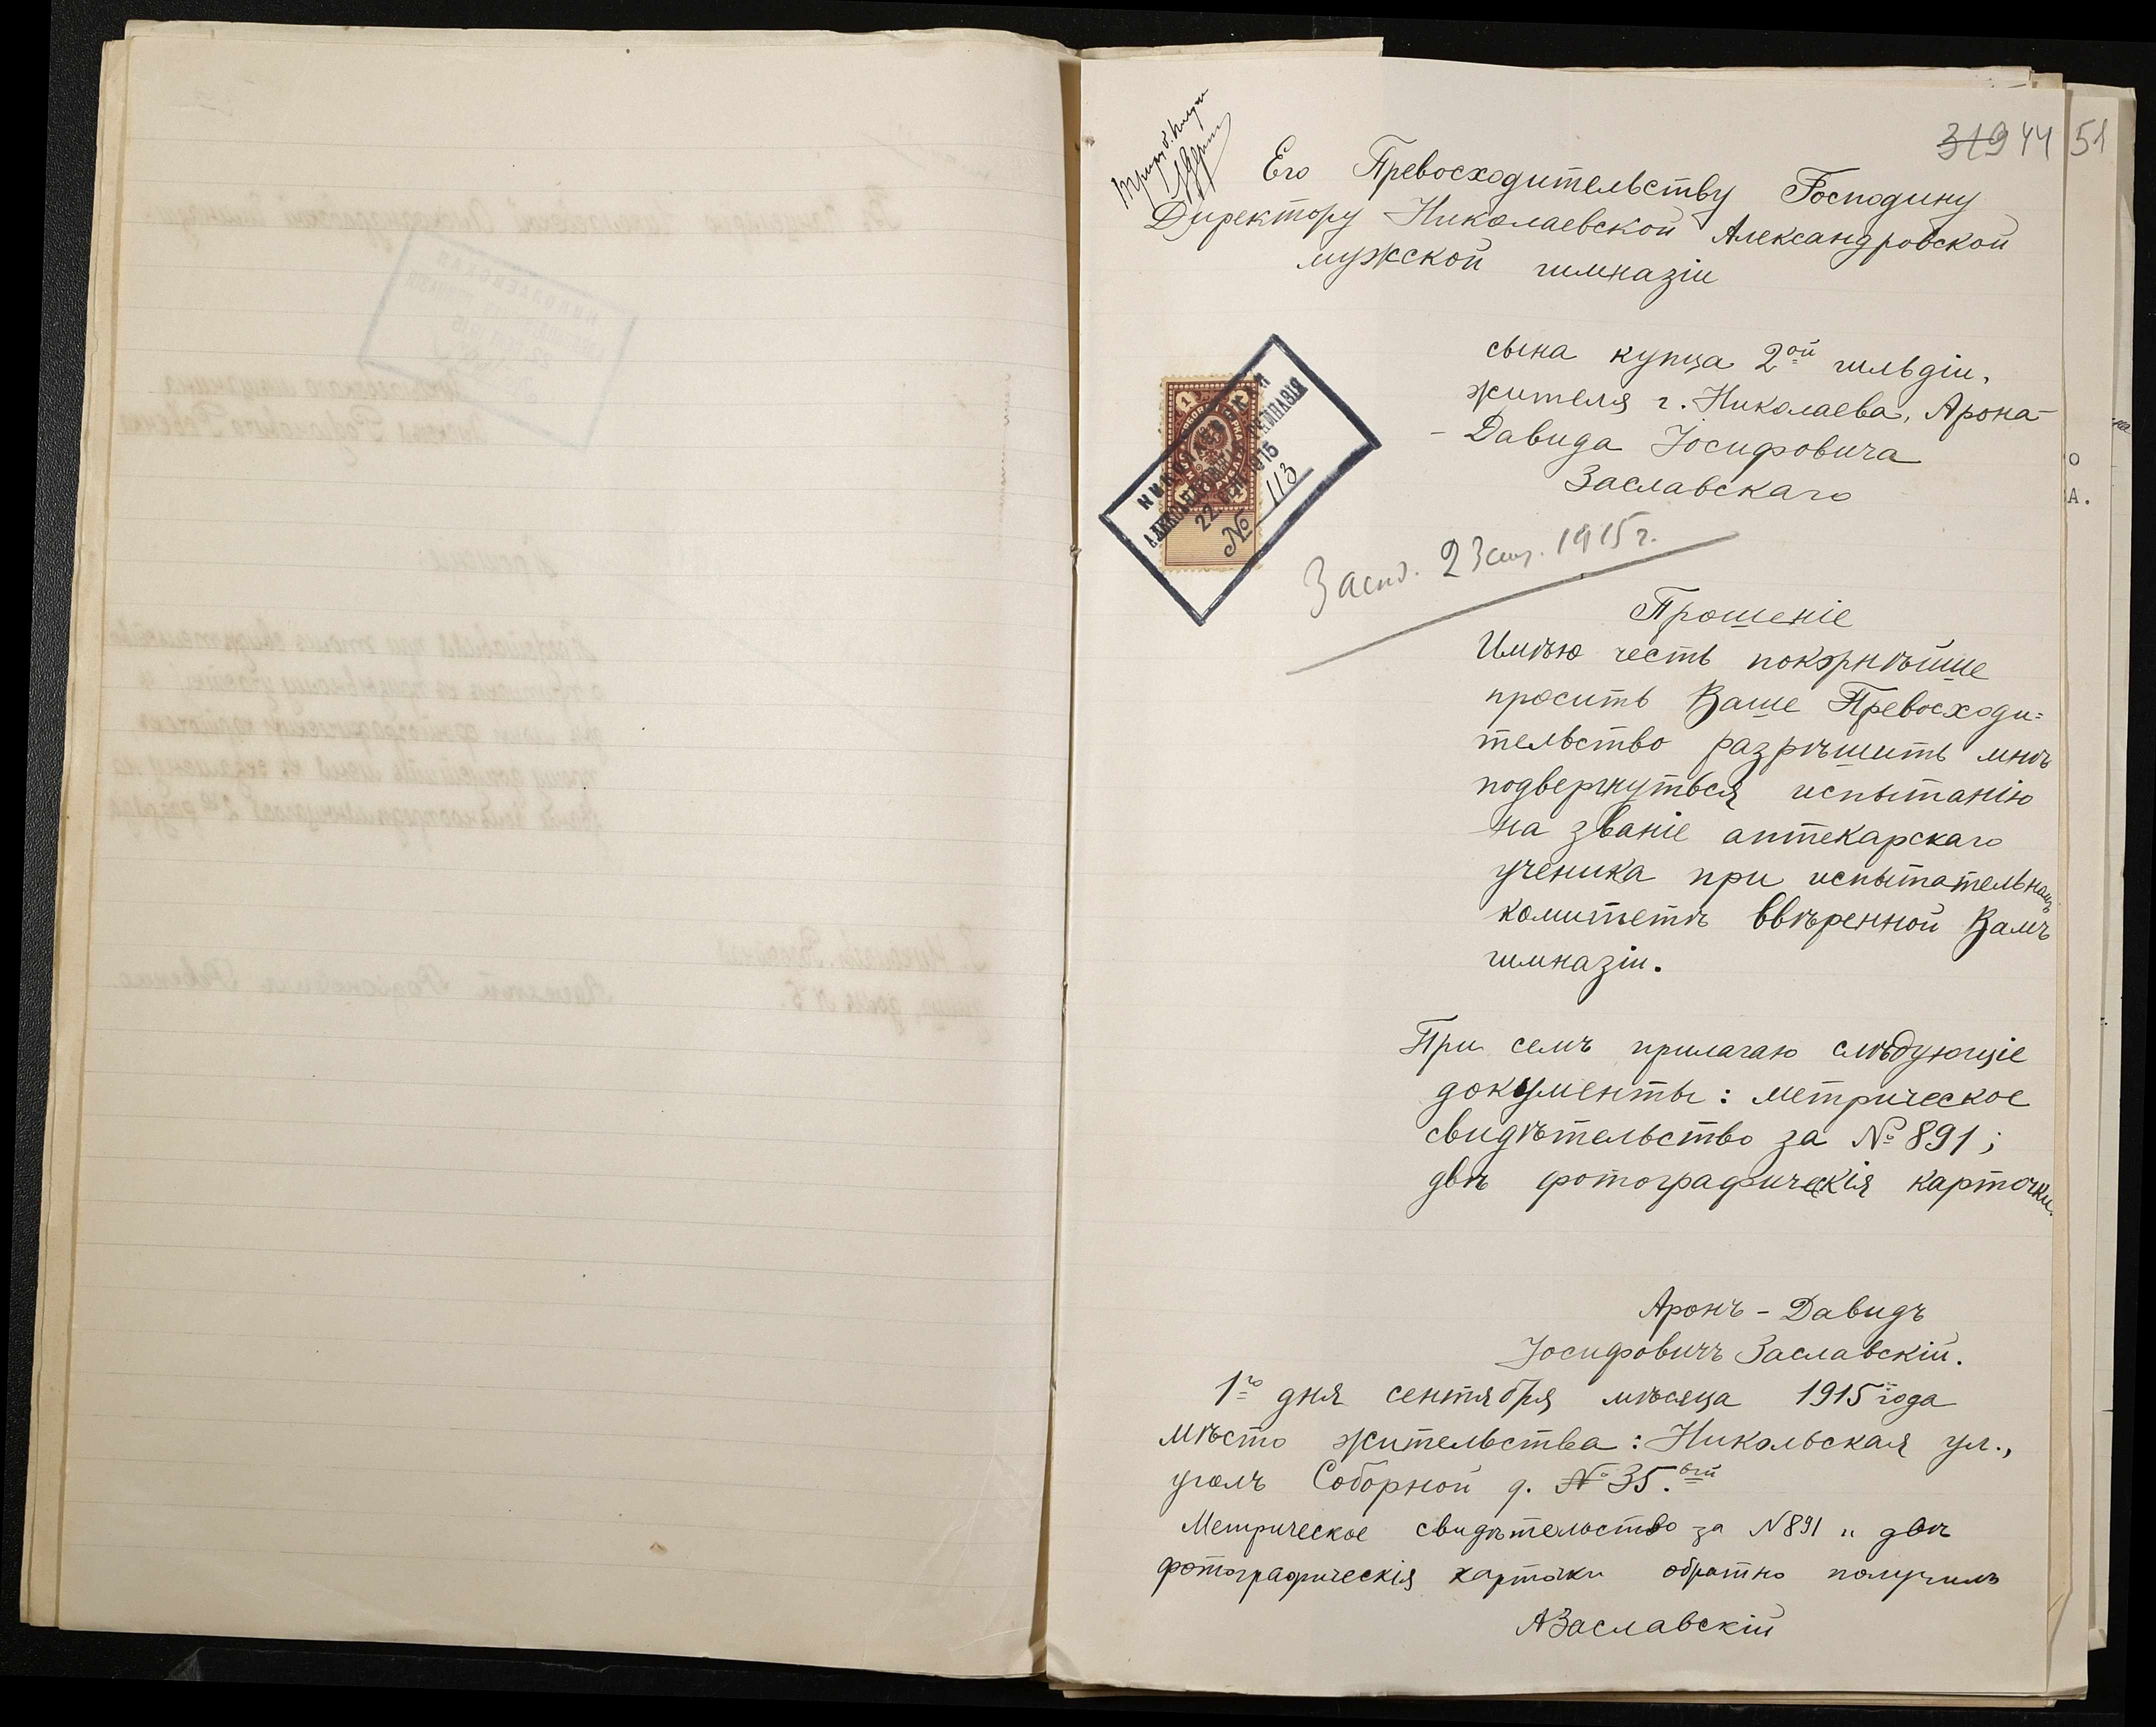 319 44 51
Его Превосходительству Господину
Директору Николаевской Александровской
мужской гимназіи
сына купца 2ой гильдіи,
жителя г. Николаева, Арона-
-Давида Іосифовича
Заславскаго
НИКОЛАЕВСКАЯ
АЛЕКСАНДРОВСКАЯ ГИМНАЗІЯ
22 СЕН 1915
№ 113
1 1
23 1915 г.
Прошеніе
Имѣю честь покорнѣйше
просить Ваше Превосходи=
тельство разрѣшить мнѣ
подвергнуться испытанію
на званіе аптекарскаго
ученика при испытательномъ
комитетѣ ввѣренной Вамъ
гимназіи.
При семъ прилагаю слѣдующіе
документы: метрическое
свидѣтельство за № 891;
двѣ фотографическія карточки.
Аронъ-Давидъ
Іосифовичъ Заславскій.
1го дня сентября мѣсяца 1915 года
Мѣсто жительства: Никольская ул.,
уголъ Соборной д. № 35.ый
Метрическое свидѣтельство за N 891 и двѣ
фотографическія карточки обратно получилъ
АЗаславскій